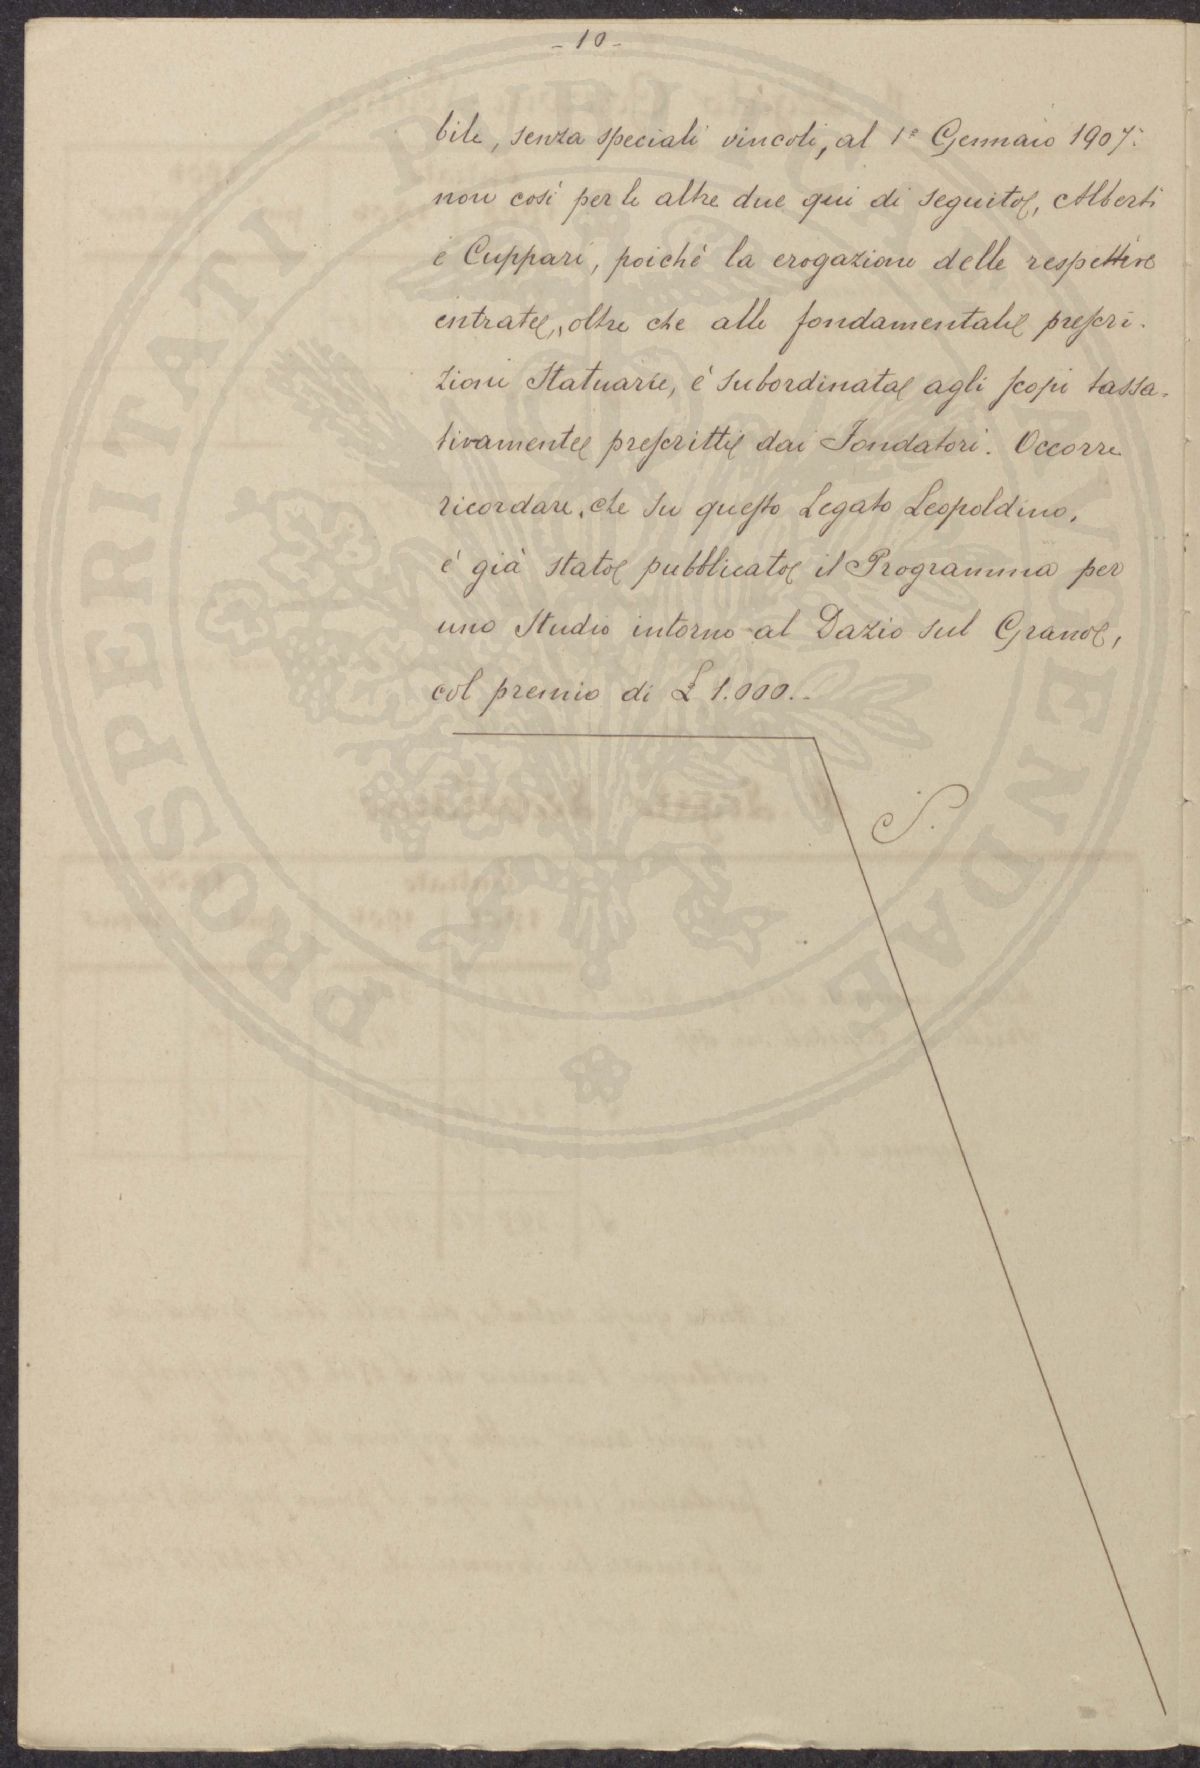 - 10 -
bile, senza speciali vincoli, al 1º Gennaio 1907:
non così per le altre due qui di seguito, Alberti
e Cuppari, poichè la erogazione delle respettive
entrate, oltre che alle fondamentali prescri-
zioni Statuarie, è subordinata agli scopi tassa-
tivamente prescritti dai Fondatori. Occorre
ricordare, che su questo Legato Leopoldino,
è già stato pubblicato il Programma per
uno Studio intorno al Dazio sul Grano,
col premio di £ 1.000..
S.
PROSPERITATI PUBLICAE AUGENDAE